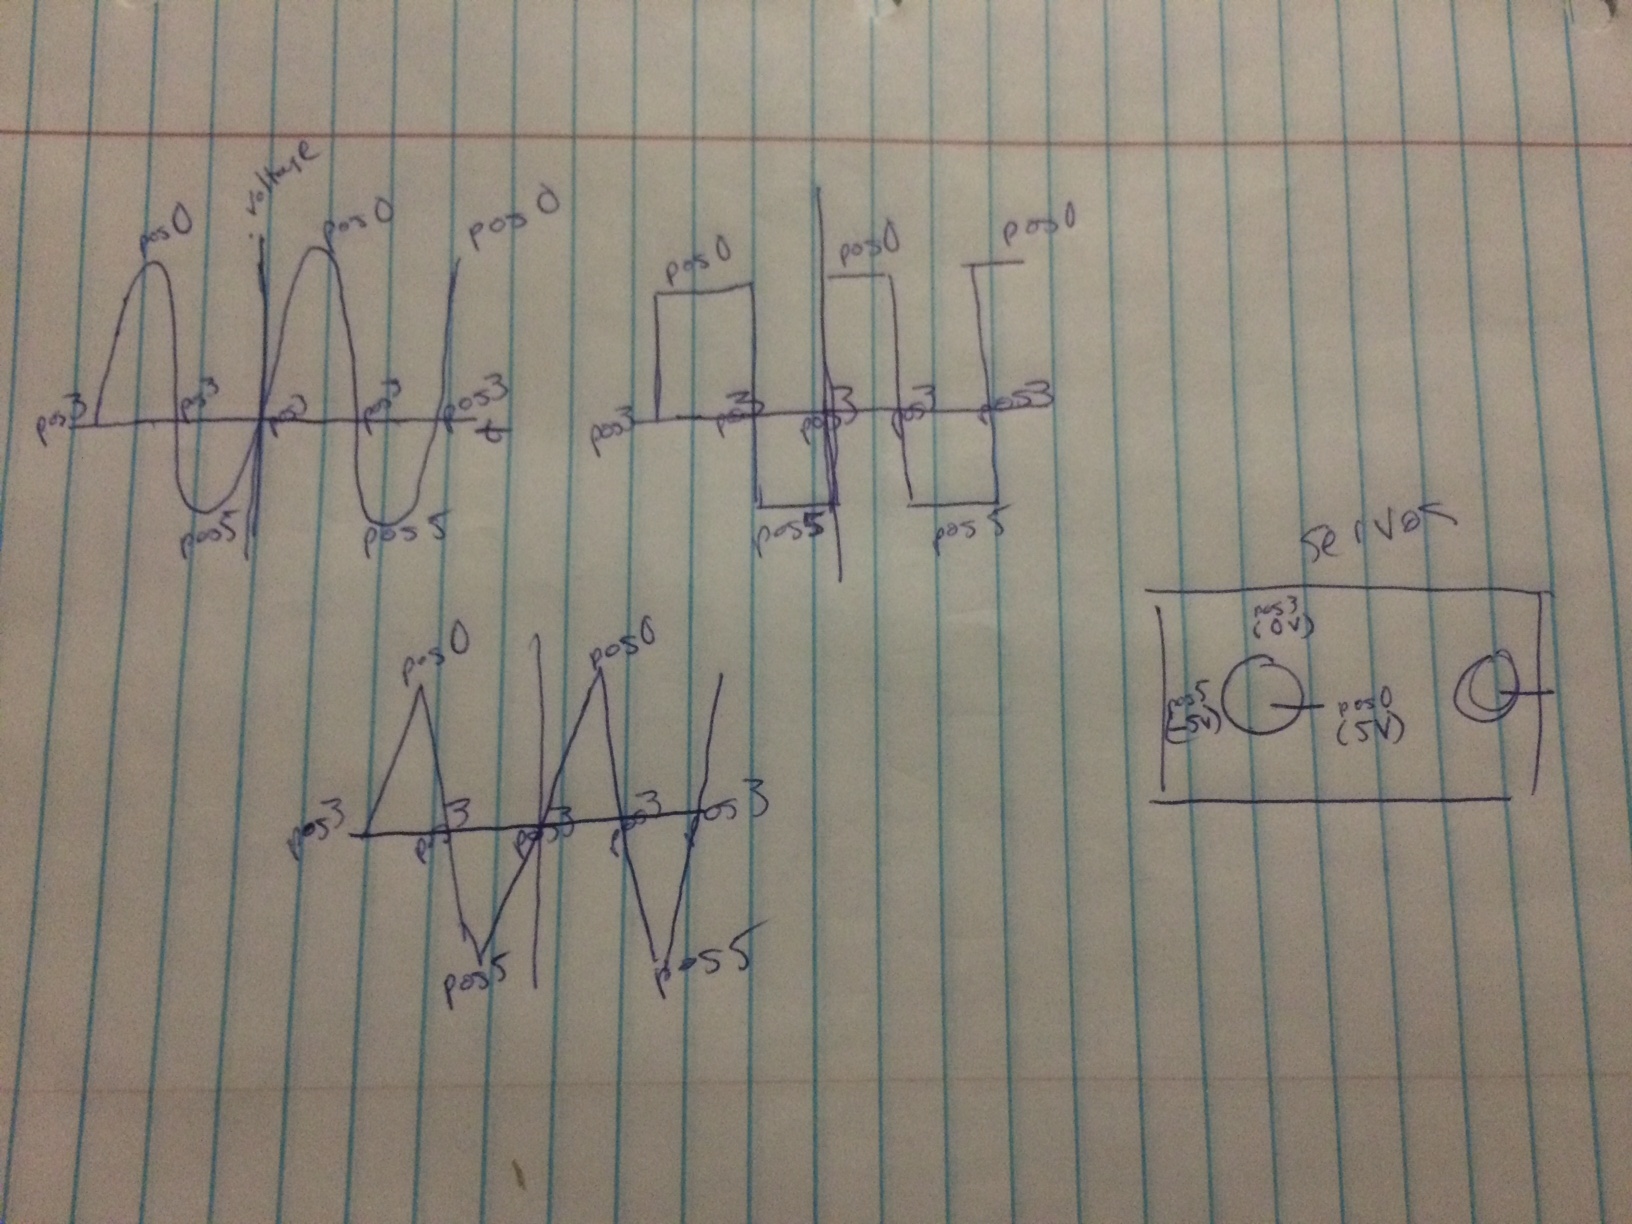 voltage
pos0
pos0
pos0
pos3
pos3
pos3
pos3
pos3
t
pos5
pos5
pos0
pos0
pos0
pos3
pos3
pos3
pos3
pos3
pos5
pos5
pos0
pos0
pos3
pos3
pos3
pos3
pos3
pos5
pos5
servos
pos3
(0V)
pos5
(-5V)
pos0
(5V)